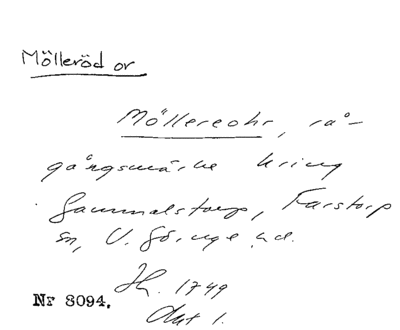 Mölleröd or
Möllereohr, rå-
gångsmärke kring
Gammalstorp, Farstorp
sn, V. Göinge hd.
Nr 8094. Jb. 1749
Akt 1.